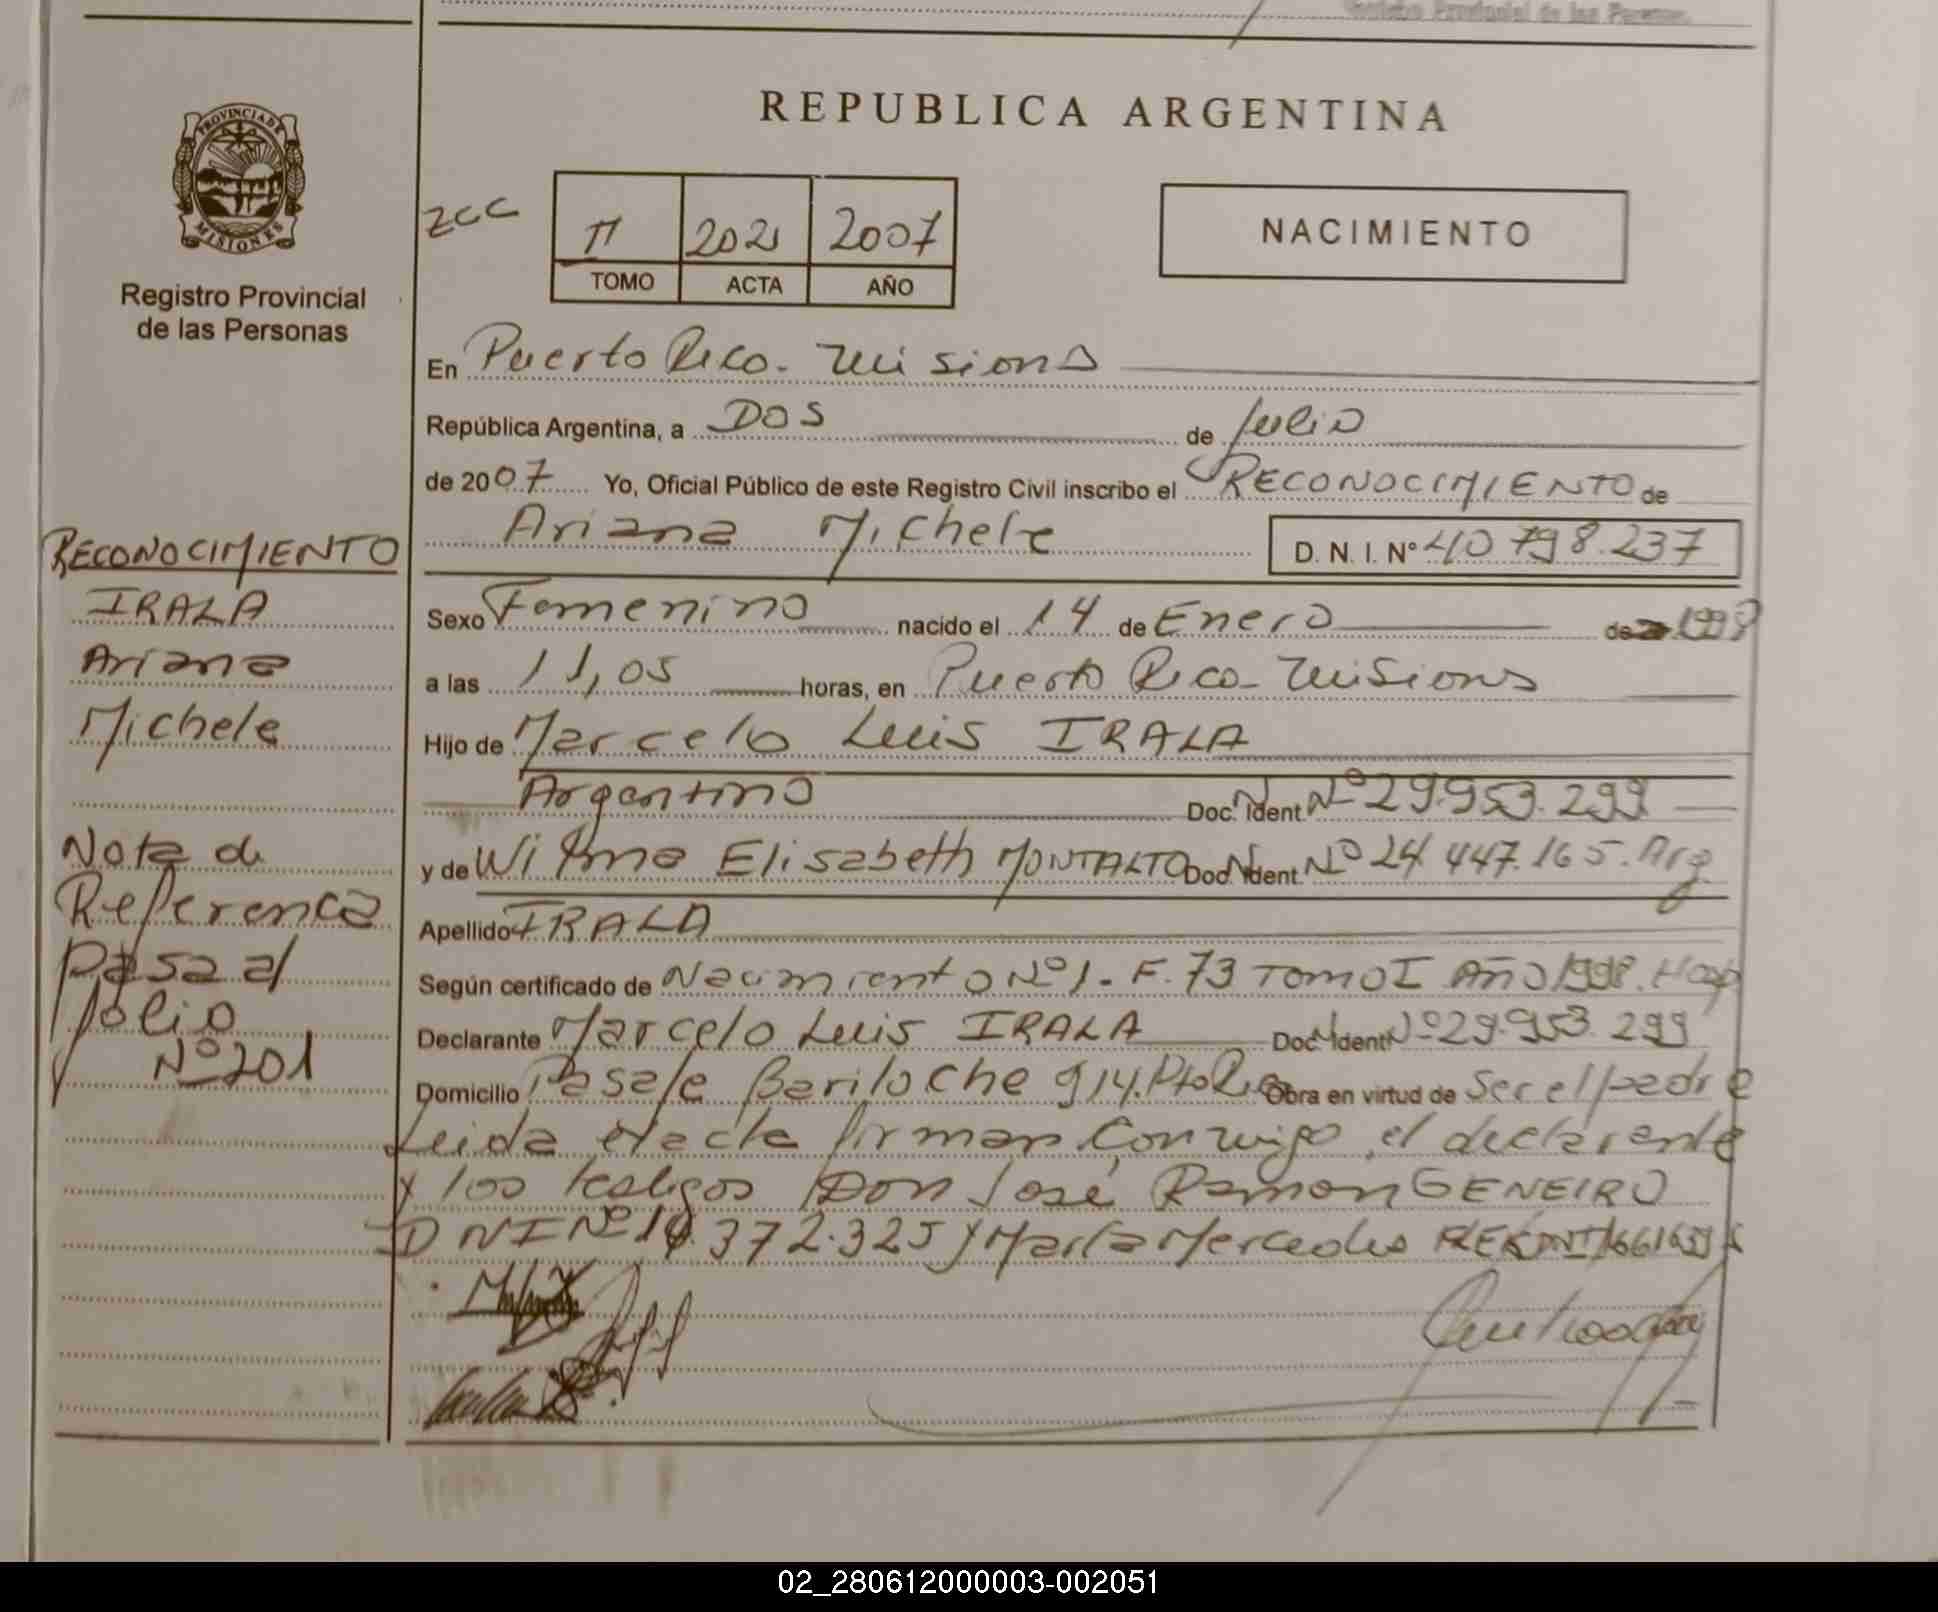 REPUBLICA ARGENTINA
PROVINCIA DE
MISIONES
Registro Provincial
de las Personas
ZCC
II 202 2007
TOMO ACTA AÑO
NACIMIENTO
En Puerto Rico. Misiones
República Argentina, a DOS de Julio
de 2007 Yo, Oficial Público de este Registro Civil inscribo el RECONOCIMIENTO de
Ariana Michele D. N. I. N° 40 798.237
Sexo Femenino nacido el 14 de Enero de 1998
a las 11,05 horas, en Puerto Rico - Misiones
Hijo de Marcelo Luis IRALA
Argentino Doc. Ident N° 29.953.299
y de Wilma Elisabeth MONTALTO Doc Ident N° 24.447.165. Arg
Apellido IRALA
Según certificado de Nacimiento N° 1 - F. 73 TOMO I AÑO 1998. Hosp
Declarante Marcelo Luis IRALA Doc Ident N° 29.953.299
Domicilio Pasaje Bariloche 914. Pto Rico Obra en virtud de Ser el padre
Leida el acta firman conmigo, el declarante
y los testigos Don José Ramon GENEIRO
DNI N° 372.325 y Maria Mercedes
RECONOCIMIENTO
IRALA
Ariana
Michele
Nota de
Referencia
Pasa al
folio
N° 201
02_280612000003-002051